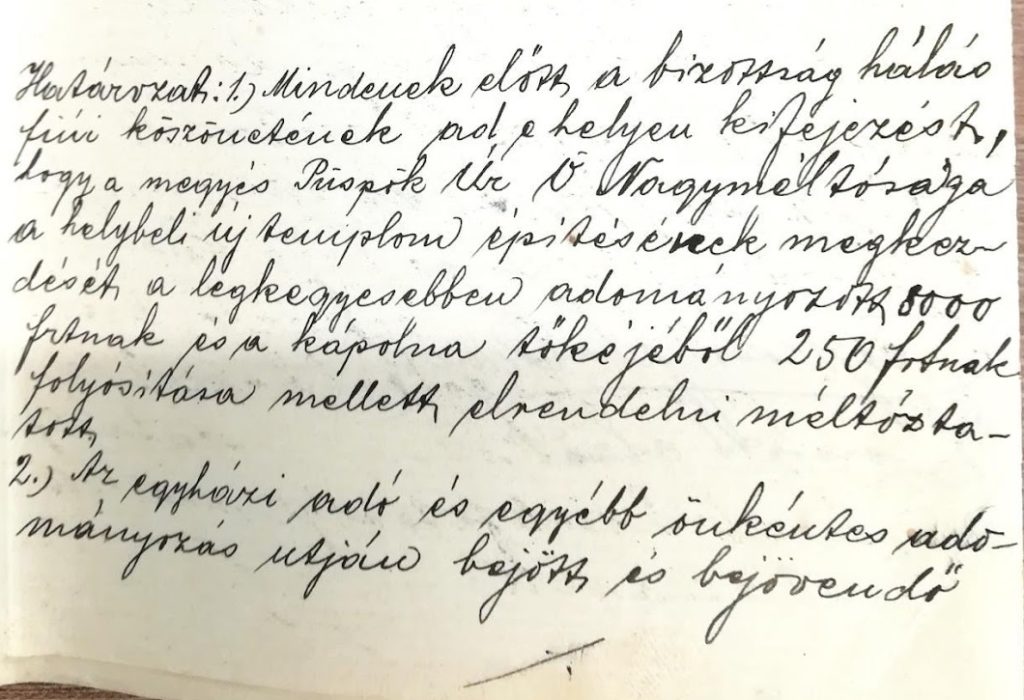 Határozat: 1.) Mindenek előtt a bizottság hálás
fiúi köszönetének ad e helyen kifejezést,
hogy a megyés Püspök Úr Ő Nagyméltósága
a helybeli új templom építésének megkez-
dését a legkegyesebben adományozott 8000
frtnak és a kápolna tőkéjéből 250 frtnak
folyósítása mellett elrendelni méltózta-
tott
2.) Az egyházi adó és egyébb önkéntes ado-
mányozás utján bejött és bejövendő